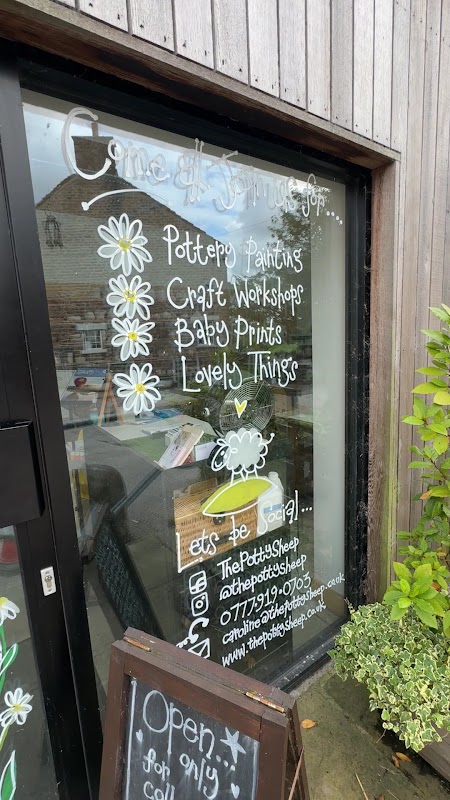 Come & Join us for....
Pottery Painting
Craft Workshops
Baby Prints
Lovely Things
Lets be Social...
ThePottySheep
@thepottysheep
0777.919.0703
caroline@thepottysheep.co.uk
www.thepottysheep.co.uk
Open...
for only
coll